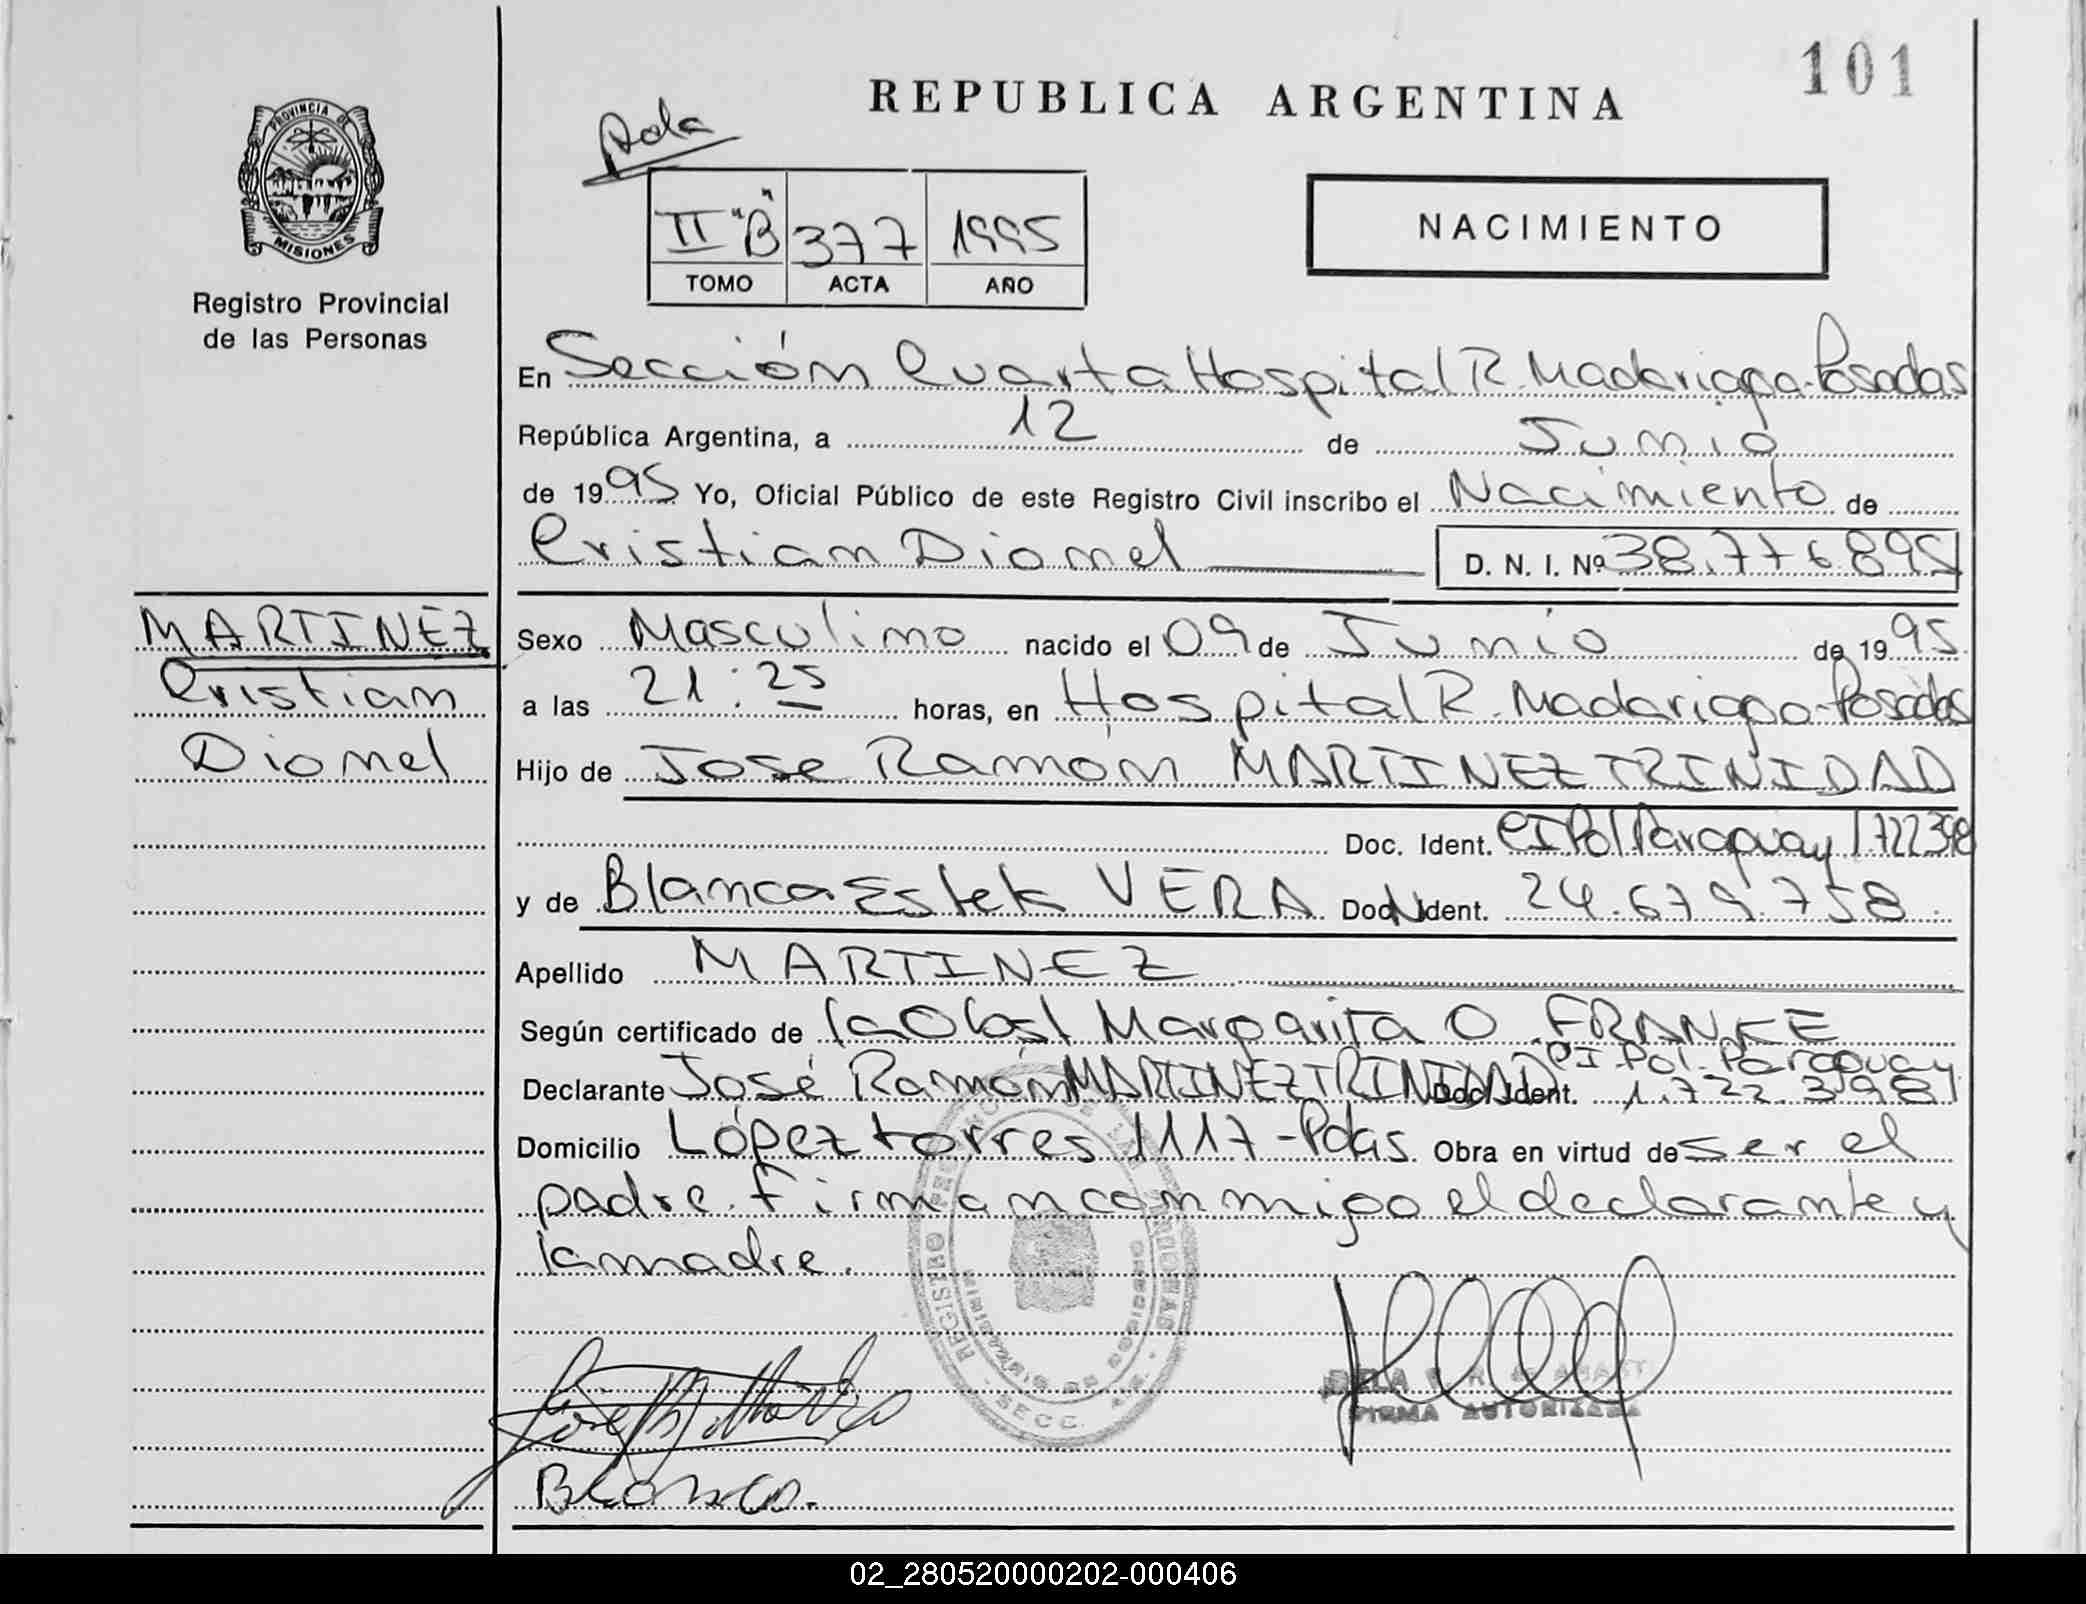 101
REPUBLICA ARGENTINA
PROVINCIA DE
MISIONES
Registro Provincial
de las Personas
II "B" 377 1995
TOMO ACTA AÑO
NACIMIENTO
En Sección Cuarta Hospital R. Madariaga-Posadas
República Argentina, a 12 de Junio
de 1995 Yo, Oficial Público de este Registro Civil inscribo el Nacimiento de
Cristian Dionel D. N. I. Nº 38.776895
MARTINEZ
Cristian
Dionel
Sexo Masculino nacido el 09 de Junio de 1995
a las 21:25 horas, en Hospital R. Madariaga-Posadas
Hijo de Jose Ramón MARTINEZ TRINIDAD
Doc. Ident. CI Pol Paraguay 1722398
y de Blanca Estela VERA Doc. Ident. 24.679.758
Apellido MARTINEZ
Según certificado de la Obst Margarita O. FRANKE
Declarante José Ramón MARTINEZ TRINIDAD Doc. Ident. CI. Pol. Paraguay 1.722.398
Domicilio López torres 1117-Pdas. Obra en virtud de ser el
padre. Firman conmigo el declarante y
la madre.
FIRMA AUTORIZADA
Blanca.
02_280520000202-000406